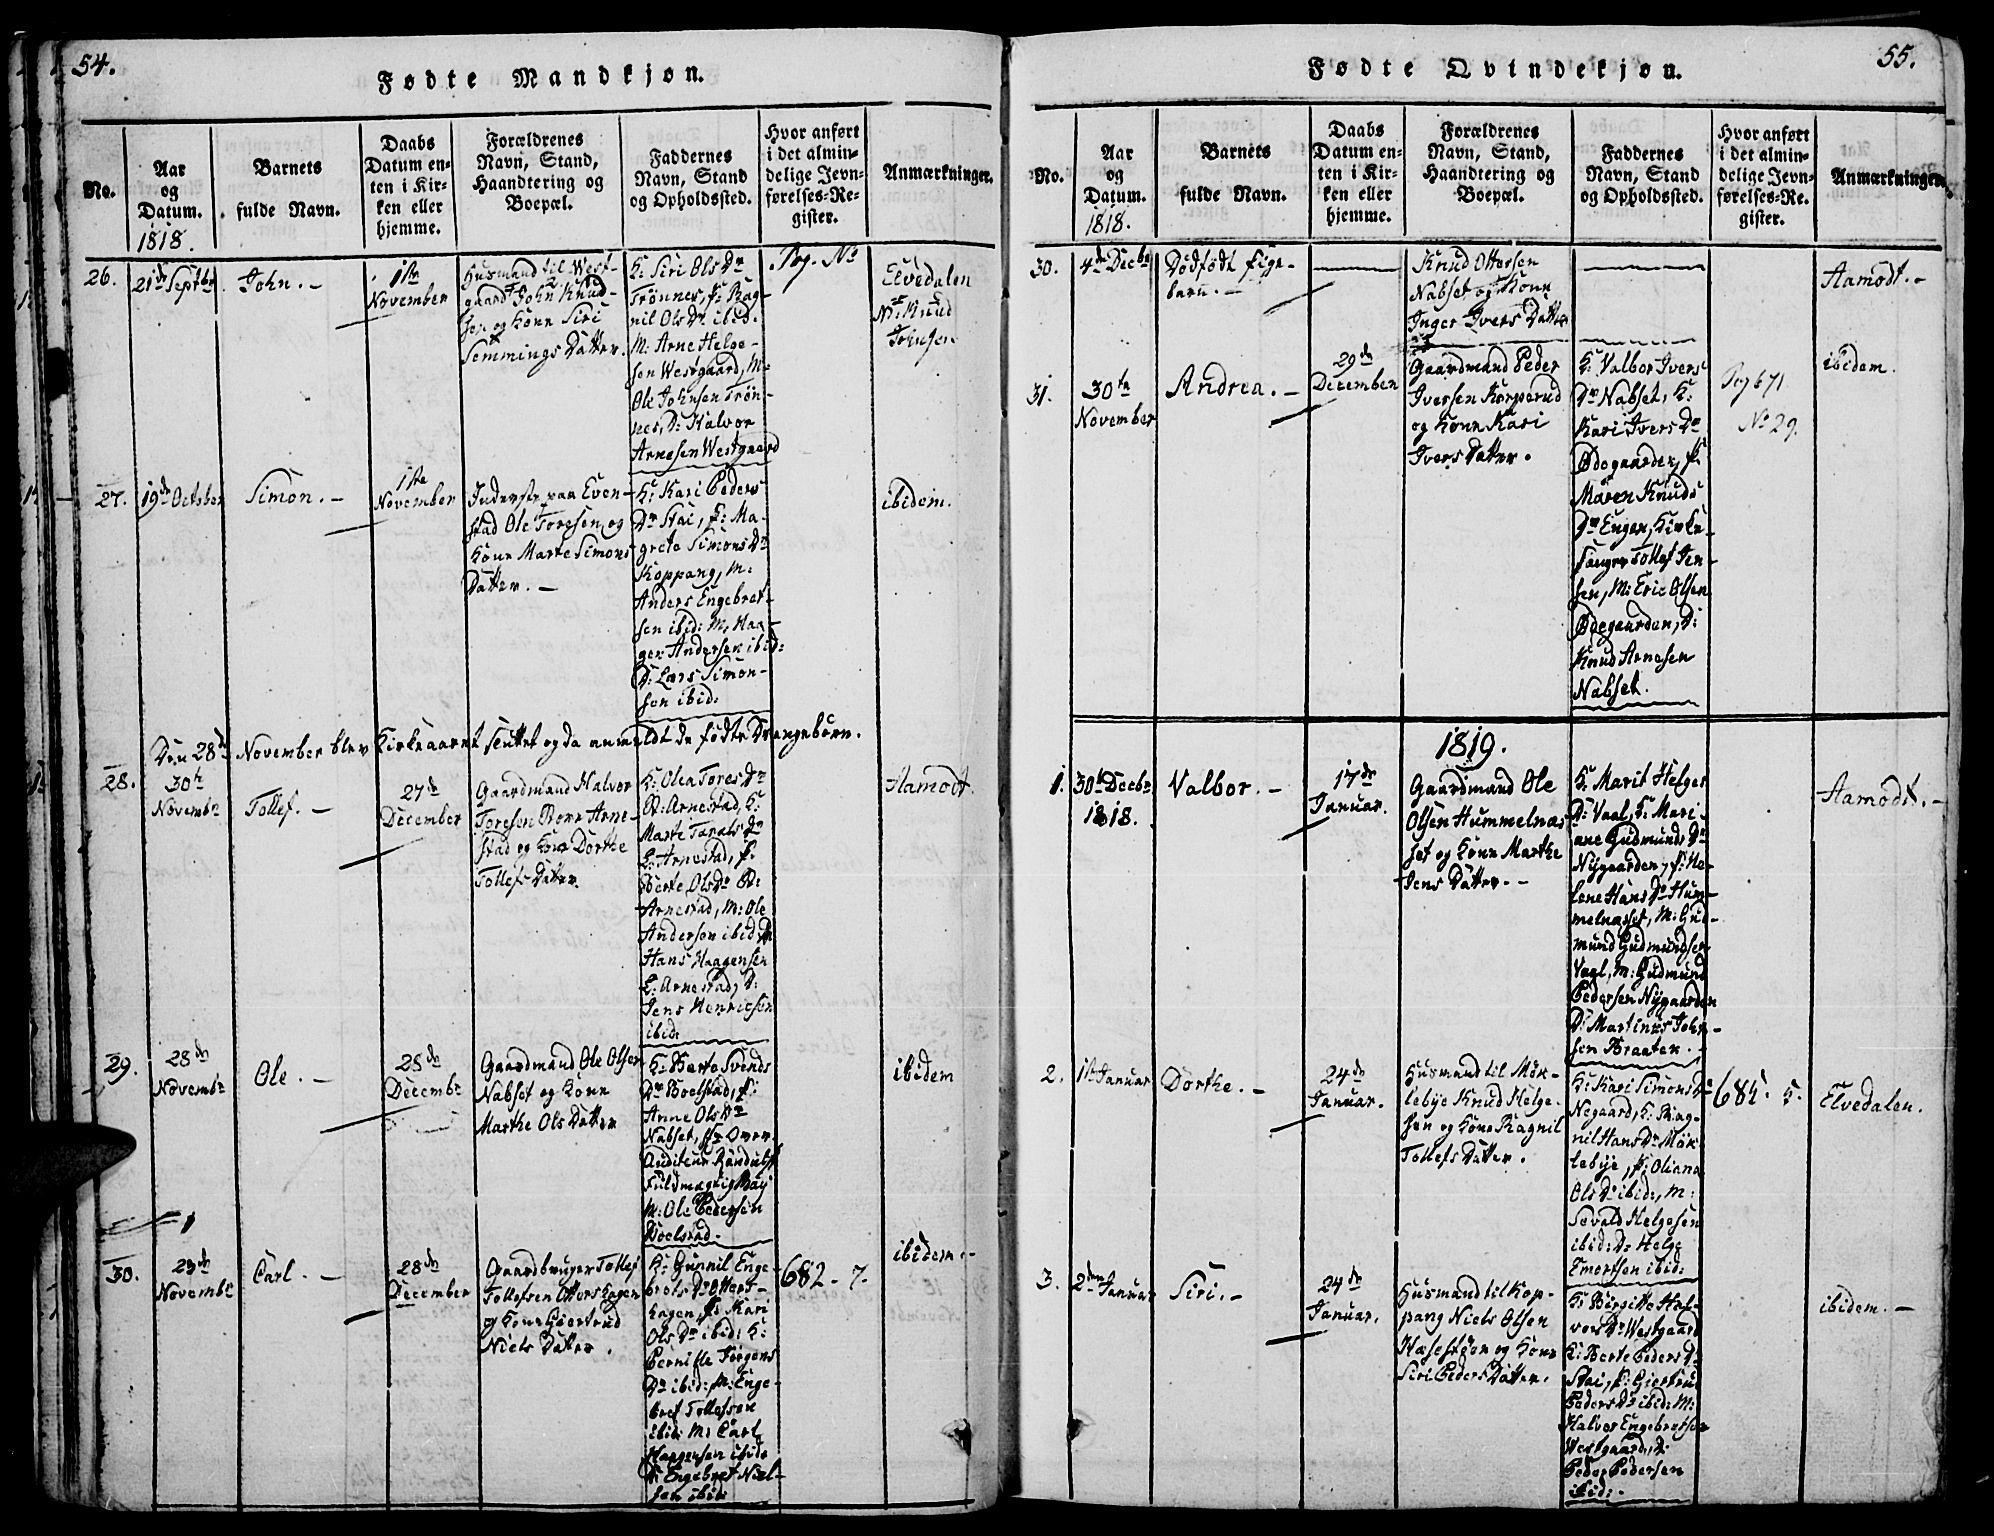 54.
Fødte Mandkjøn.
No.
Aar
og
Datum.
1818.
Barnets
fulde Navn.
Daabs
Datum en-
ten i Kir-
ken eller
hjemme.
Forældrenes
Navn, Stand,
Haandtering og
Boepæl.
Faddernes
Navn, Stand
og Opholdssted.
Hvor anført
i det almin-
delige Jevn-
førelses-Re-
gister.
Anmærkninger.
26.
21de Septbr
John. –
1ste
November
Huusmand til West-
gaard John Knud-
sen og Kone Siri
Semmings Datter.
K: Siri Ols Dr
Trønnes, P: Rag-
nil Ols Dr ibid.
M: Arne Helge-
sen Westgaard, M:
Ole Johnsen Trøn-
nes, D: Halvor
Arnesen Westgaard
Pag. No
Elvedalen
Knud
Johnsen
27.
19de October
Simon. –
1ste
November
Inderste paa Even-
stad Ole Toresen og
Kone Marte Simons
Datter. –
K: Kari Peders
Dr Stai, P: Ma-
grete Simons Dr
Koppang, M:
Anders Engebret-
sen ibid: M: Haa-
gen Andersen ibid:
D: Lars Simon-
sen ibid:
ibidem.
Den 28de November blev Kirkeaaret sluttet og da anmeldt de fødte Drengebørn.
28.
30te
Novembr
Tollef. –
27de
December
Gaardmand Halvor
Toresen Arne-
stad og Kone Dorthe
Tollefs Datter.
K: Olea Tores Dr
Arnestad, K:
Marte Dr
Arnestad, P:
Berte Ols Dr
Arnestad, M: Ole
Andersen ibid M
Hans Haagensen
Arnestad, D:
Jens Henricsen
ibid:
Aamodt.
29.
28de
Novembr
Ole. –
28de
Decembr
Gaardmand Ole Olsen
Nabset og Kone
Marthe Ols Datter
K: Berte Svends
Dr Boelstad, P:
Anne Ols Dr
Nabset, Over
Auditeur
Fuldmægtig
M: Ole Pedersen
Boelstad.
ibidem
30.
23de
Novembr
Carl. –
28de
December
Gaardbruger Tollef
Tollefsen Ottershagen
og Kone Giertrud
Niels Datter.
K: Gunnil Enge-
brets Dr Otters-
hagen, P: Kari
Ols Dr ibid: K:
Pernille Jørgens
Dr ibid: M: Enge-
bret Tollefsen
ibid: M: Carl
Haagensen ibid:
Engebret Niel-
sen ibid:
682. 7.
ibidem. –
55.
Fødte Qvindekjøn.
No.
Aar
og
Datum.
1818.
Barnets
fulde Navn.
Daabs
Datum en-
ten i Kir-
ken eller
hjemme.
Forældrenes
Navn, Stand,
Haandtering og
Boepæl.
Faddernes
Navn, Stand
og Opholdssted.
Hvor anført
i det almin-
delige Jevn-
førelses-Re-
gister.
Anmærkninger.
30.
4de Decbr
Dødfødt Pige-
barn. –
Knud Ottersen
Nabset og Kone
Inger Ivers Datter
Aamodt. –
31.
30te
November
Andrea. –
29de
December
Gaardmand Peder
Iversen Korperud
og Kone Kari
Ivers Datter.
K: Valbor Ivers
Dr Nabset, K:
Kari Ivers Dr
Ødegaarden, P:
Maren Knuds
Dr Enger, Kirke-
sanger Tollef Jen-
sen, M: Eric Olsen
Ødegaarden, D:
Knud Arnesen
Nabset.
Pag 671
No 29.
ibidem.
1819.
1.
30te Decbr
1818.
Valbor. –
17de
Januar.
Gaardmand Ole
Olsen Hummelnas-
set og Kone Marthe
Jens Datter. –
K: Marit Helges
Dr Vaal, K: Mari-
ane Gudmunds Dr
Nygaarden, P: He-
lene Hans Dr Hum-
melnasset, M: Gud-
mund Gudmundsen
Vaal, M: Gudmund
Pedersen Nygaarden
D: Martinus John-
sen Braaten. –
Aamodt. –
2.
1ste Januar
Dorthe. –
24de
Januar.
Huusmand til Møk-
lebye Knud Helge-
sen og Kone Ragnil
Tollefs Datter.
K: Kari Simons Dr
Negaard, K: Rag-
nil Hans Dr Møk
lebye, P: Oliana
Ols Dr ibid:, M:
Sevald Helgesen
ibid: D: Helge
Emortsen ibid:
685. 5.
Elvedalen.
3.
2den Januar
Siri. –
24de
Januar.
Huusmand til Kop-
pang Niels Olsen
Hæsestøen og Kone
Siri Peders Datter.
K: Birgitte Hal-
vors Dr Westgaard
K: Berte Peders Dr
Stai, P: Giertrud
Peders Dr ibid: M:
Halvor Engebretsen
Westgaard, D:
Peder Pedersen
ibid:.
ibidem. –